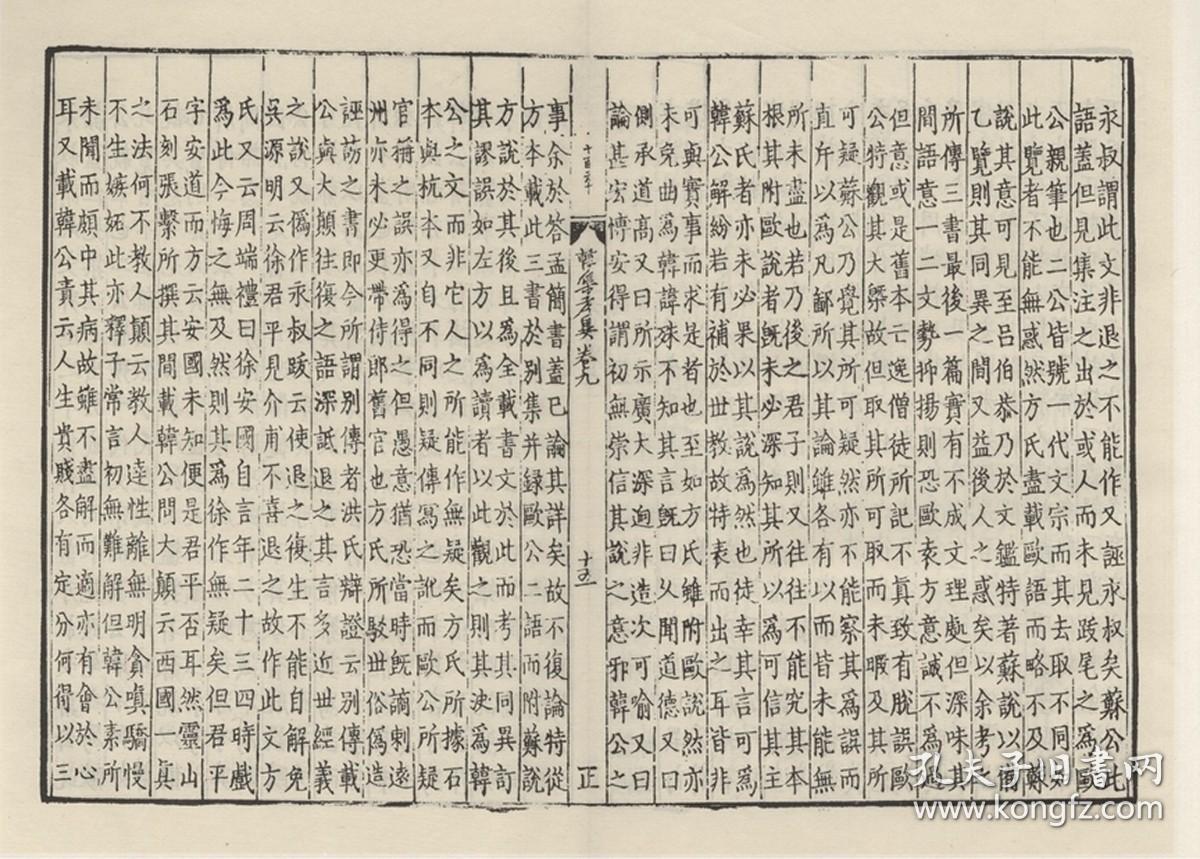 永叔謂此文非退之不能作又誣永叔矣蘇公此
語蓋但見集注之出於或人而未見跋尾之為歐
公親筆也二公皆號一代文宗而其去取不同如
此覽者不能無惑然方氏盡載歐語而略不及蘇
說其意可見至呂伯恭乃於文鑑特著蘇說以備
乙覽則其同異之間又益後人之惑矣以余考之
所傳三書最後一篇實有不成文理處但深味其
間語意一二文勢抑揚則恐歐袁方意誠不為過
但意或是舊本亡逸僧徒所記不真致有脫誤歐
公特觀其大槩故但取其所可取而未暇及其所
可疑蘇公乃覺其所可疑然亦不能察其為誤而
直斥以為凡鄙所以其論雖各有以而皆未能無
所未盡也若乃後之君子則又往往不能究其本
根其附歐說者旣未必深知其所以為可信其主
蘇氏者亦未必果以其說為然也徒幸其言可為
韓公解紛若有補於世教故特表而出之耳皆非
可與實事而求是者也至如方氏雖附歐說然亦
未免曲為韓諱殊不知其言旣曰乆聞道德又曰
側承道高又曰所示廣大深迥非造次可喻又曰
論甚宏博安得謂初無崇信其說之意邪韓公之
韓集考異卷九
十五
正
事余於答孟簡書蓋已論其詳矣故不復論特從
方本載此三書於別集并録歐公二語而附蘇說
方說於其後且為全載書文於此而考其同異訂
其謬誤如左方以為讀者以此觀之則其決為韓
公之文而非它人之所能作無疑矣方氏所據石
本與杭本又自不同則疑傳寫之訛而歐公所疑
官稱之誤亦為得之但愚意猶恐當時旣謫剌遠
州亦未必更帶侍郎舊官也方氏所駁世俗偽造
誣謗之書即今所謂別傳者洪氏辯證云別傳載
公與大顛往復之語深詆退之其言多近世經義
之說又偽作永叔跋云使退之復生不能自解免
吳源明云徐君平見介甫不喜退之故作此文方
氏又云周端禮曰徐安國自言年二十三四時戲
為此今悔之無及然則其為徐作無疑矣但君平
字安道而方云安國未知便是君平否耳然靈山
石刻張繫所撰其間載韓公問大顛云西國一真
之法何不教人顛云教人達性離無明貪嗔驕慢
不生嫉妬此亦釋子常言初無難解但韓公素所
未聞而頗中其病故雖不盡解而適亦有會於心
耳又載韓公責云人生貴賤各有定分何得以三
孔夫子旧書网
www.kongfz.com